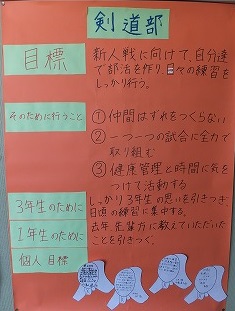 剣道部
目標
新人戦に向けて、自分達
で部活を作り、日々の練習を
しっかり行う。
そのために行うこと
①仲間はずれをつくらない
②一つ一つの試合に全力で
取り組む
③健康管理と時間に気を
つけて活動する
3年生のために
しっかり3年生の思いを引きつぎ、
日頃の練習に集中する。
1年生のために
去年先輩方に教えていただいた
ことを引きつぐ。
個人目標